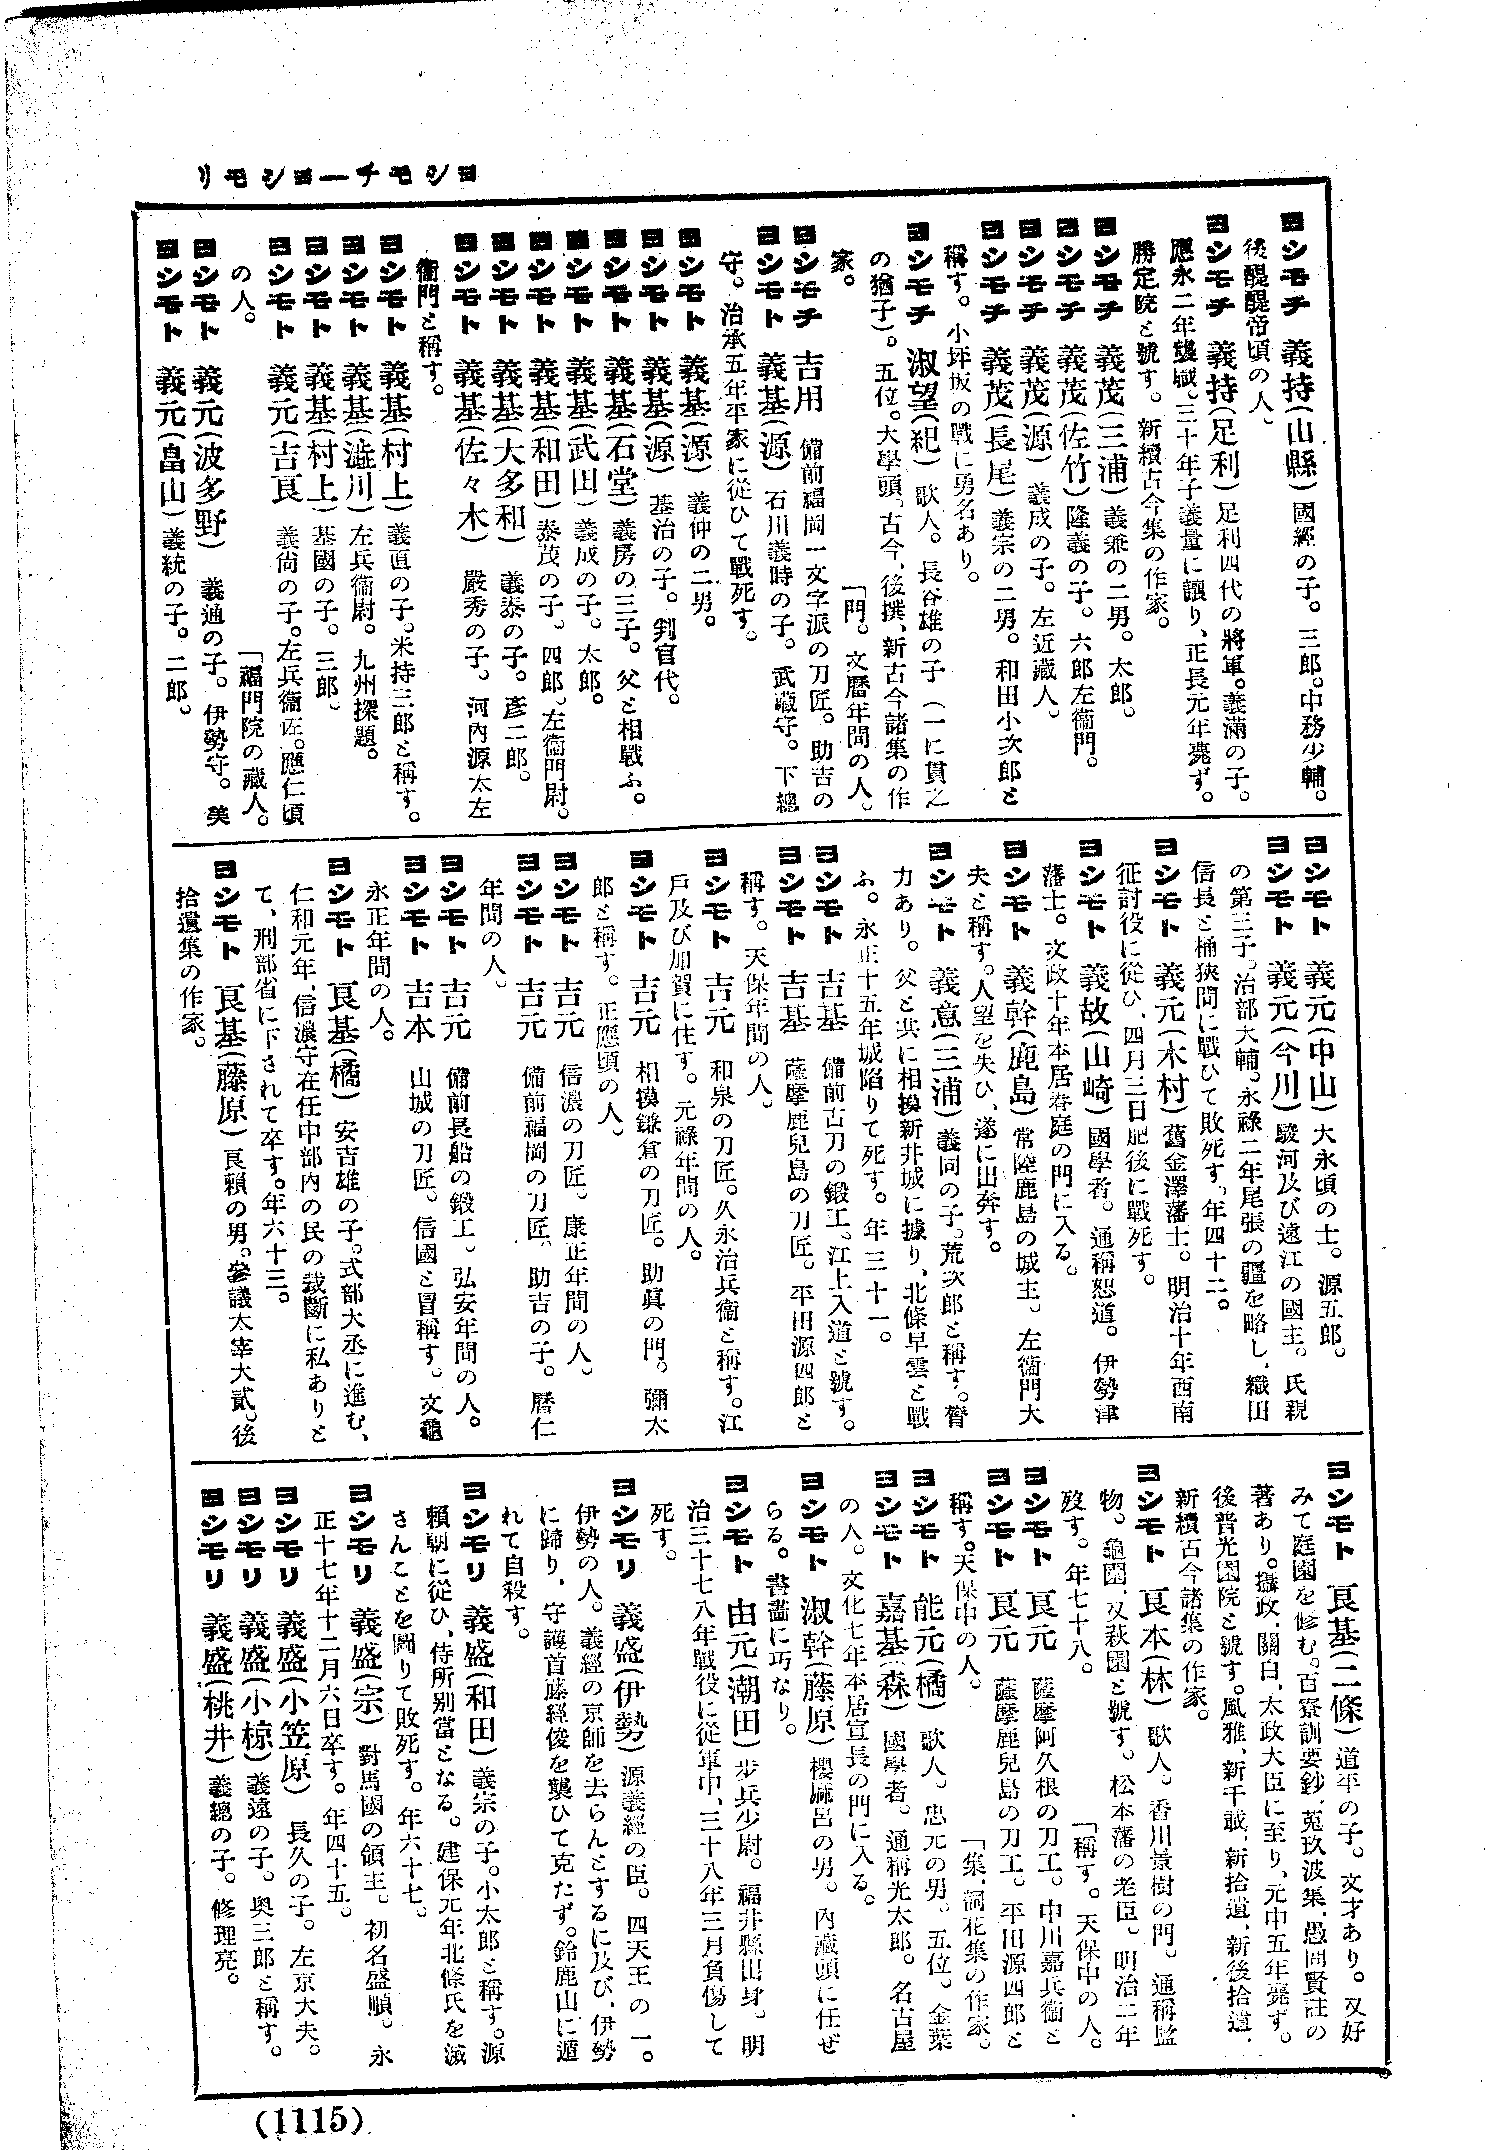 ヨシモチ―ヨシモリ
ヨシモチ 義持(山縣) 國經の子。三郎。中務少輔。
後醍醐帝頃の人。
ヨシモチ 義持(足利) 足利四代の將軍。義滿の子。
應永二年襲職。三十年子義量に讓り、正長元年薨ず。
勝定院と號す。新續古今集の作家。
ヨシモチ 義茂(三浦) 義兼の二男。太郎。
ヨシモチ 義茂(佐竹) 隆義の子。六郎左衞門。
ヨシモチ 義茂(源) 義成の子。左近藏人。
ヨシモチ 義茂(長尾) 義宗の二男。和田小次郎と
稱す。小坪坂の戰に勇名あり。
ヨシモチ 淑望(紀) 歌人。長谷雄の子(一に貫之
の猶子)。五位。大學頭。古今、後撰、新古今諸集の作
家。
「門。文曆年間の人。
ヨシモチ 吉用 備前福岡一文字派の刀匠。助吉の
ヨシモト 義基(源) 石川義時の子。武藏守。下總
守。治承五年平家に從ひて戰死す。
ヨシモト 義基(源) 義仲の二男。
ヨシモト 義基(源) 基治の子。判官代。
ヨシモト 義基(石堂) 義房の三子。父と相戰ふ。
ヨシモト 義基(武田) 義成の子。太郎。
ヨシモト 義基(和田) 泰茂の子。四郎。左衞門尉。
ヨシモト 義基(大多和) 義泰の子。彥二郎。
ヨシモト 義基(佐々木) 嚴秀の子。河內源太左
衞門と稱す。
ヨシモト 義基(村上) 義直の子。米持三郎と稱す。
ヨシモト 義基(澁川) 左兵衞尉。九州探題。
ヨシモト 義基(村上) 基國の子。三郎。
ヨシモト 義元(吉良) 義尙の子。左兵衞佐。應仁頃
の人。
「福門院の藏人。
ヨシモト 義元(波多野) 義通の子。伊勢守。美
ヨシモト 義元(畠山) 義統の子。二郎。
ヨシモト 義元(中山) 大永頃の士。源五郎。
ヨシモト 義元(今川) 駿河及び遠江の國主。氏親
の第三子。治部大輔。永祿二年尾張の疆を略し、織田
信長と桶狹間に戰ひて敗死す。年四十二。
ヨシモト 義元(木村) 舊金澤藩士。明治十年西南
征討役に從ひ、四月三日肥後に戰死す。
ヨシモト 義故(山崎) 國學者。通稱恕道。伊勢津
藩士。文政十年本居春庭の門に入る。
ヨシモト 義幹(鹿島) 常陸鹿島の城主。左衞門大
夫と稱す。人望を失ひ、遂に出奔す。
ヨシモト 義意(三浦) 義同の子。荒次郎と稱す。膂
力あり。父と共に相摸新井城に據り、北條早雲と戰
ふ。永正十五年城陷りて死す。年三十一。
ヨシモト 吉基 備前古刀の鍛工。江上入道と號す。
ヨシモト 吉基 薩摩鹿兒島の刀匠。平田源四郎と
稱す。天保年間の人。
ヨシモト 吉元 和泉の刀匠。久永治兵衞と稱す。江
戶及び加賀に住す。元祿年間の人。
ヨシモト 吉元 相摸鎌倉の刀匠。助眞の門。彌太
郎と稱す。正應頃の人。
ヨシモト 吉元 信濃の刀匠。康正年間の人。
ヨシモト 吉元 備前福岡の刀匠。助吉の子。曆仁
年間の人。
ヨシモト 吉元 備前長船の鍛工。弘安年間の人。
ヨシモト 吉本 山城の刀匠。信國と冒稱す。文龜
永正年間の人。
ヨシモト 良基(橘) 安吉雄の子。式部大丞に進む、
仁和元年、信濃守在任中部內の民の裁斷に私ありと
て、刑部省に下されて卒す。年六十三。
ヨシモト 良基(藤原) 良賴の男。參議太宰大貳。後
拾遺集の作家。
ヨシモト 良基(二條) 道平の子。文才あり。又好
みて庭園を修む。百寮訓要鈔、菟玖波集、愚問賢註の
著あり。攝政、關白、太政大臣に至り、元中五年薨ず。
後普光園院と號す。風雅、新千載、新拾遺、新後拾遺、
新續古今諸集の作家。
ヨシモト 良本(林) 歌人。香川景樹の門。通稱監
物。龜園、又萩園と號す。松本藩の老臣。明治二年
歿す。年七十八。
「稱す。天保中の人。
ヨシモト 良元 薩摩阿久根の刀工。中川嘉兵衞と
ヨシモト 良元 薩摩鹿兒島の刀工。平田源四郎と
稱す。天保中の人。
「集、詞花集の作家。
ヨシモト 能元(橘) 歌人。忠元の男。五位。金葉
ヨシモト 嘉基(森) 國學者。通稱光太郎。名古屋
の人。文化七年本居宣長の門に入る。
ヨシモト 淑幹(藤原) 櫻麻呂の男。內藏頭に任ぜ
らる。書畵に巧なり。
ヨシモト 由元(潮田) 步兵少尉。福井縣出身。明
治三十七八年戰役に從軍中、三十八年三月負傷して
死す。
ヨシモリ 義盛(伊勢) 源義經の臣。四天王の一。
伊勢の人。義經の京師を去らんとするに及び、伊勢
に歸り、守護首藤經俊を襲ひて克たず。鈴鹿山に遁
れて自殺す。
ヨシモリ 義盛(和田) 義宗の子。小太郎と稱す。源
賴朝に從ひ、侍所別當となる。建保元年北條氏を滅
さんことを圖りて敗死す。年六十七。
ヨシモリ 義盛(宗) 對馬國の領主。初名盛順。永
正十七年十二月六日卒す。年四十五。
ヨシモリ 義盛(小笠原) 長久の子。左京大夫。
ヨシモリ 義盛(小椋) 義遠の子。奧三郎と稱す。
ヨシモリ 義盛(桃井) 義總の子。修理亮。
(1115)